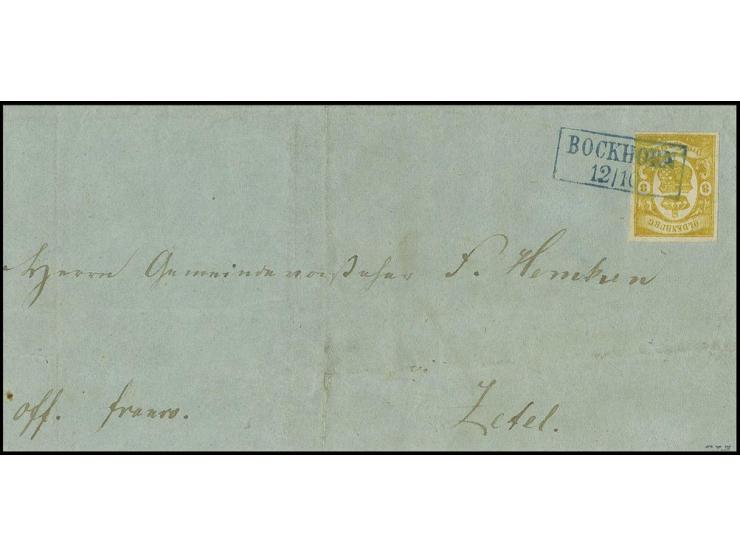 BOCKHORN
12/10
OLDENBURG
Herrn Gemeindevorsteher F. Hemken
off. franco.
Zetel.